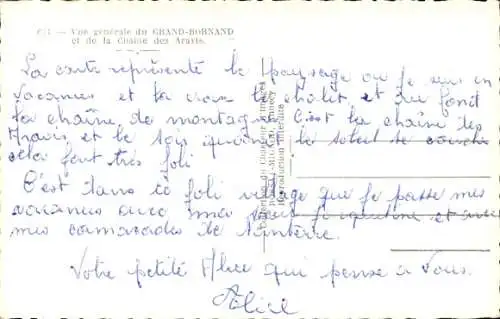 — Vue générale du GRAND-BORNAND
et de la Chaine des Aravis.
La carte représente le paysage ou je suis en
vacances et la croix le chalet et au fond
la chaîne de montagne C'est la chaîne des
Aravis et le soir quand le soleil se couche
cela fait très joli
C'est dans ce joli village que je passe mes
vacances avec ma et avec
mes camarades de Nanterre.
Votre petite Alice qui pense a Vous.
Alice
Reproduction interdite